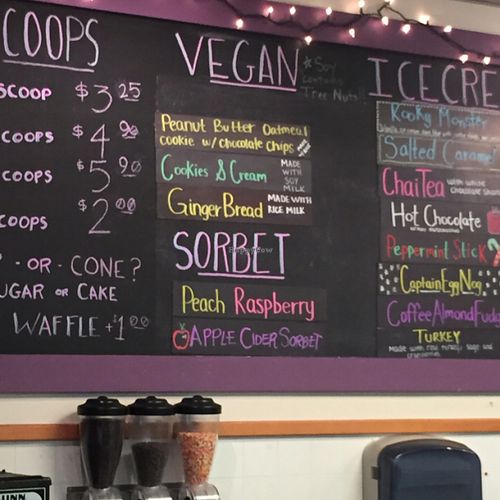 COOPS
SCOOP $3.25
COOPS $4.90
COOPS $5.90
COOPS $2.00
- OR - CONE?
UGAR OR CAKE
WAFFLE +$1.00
VEGAN
*Soy
contains
Tree Nuts!
Peanut Butter Oatmeal
cookie w/ chocolate chips
Cookies & Cream MADE WITH SOY MILK
GingerBread MADE WITH RICE MILK
SORBET
Peach Raspberry
APPLE CIDER SORBET
ICE CRE
Rocky Monster
Salted Caramel
Chai Tea WITH WHITE
Hot Chocolate
Peppermint Stick
Captain EggNog
Coffee Almond Fudg
TURKEY
made with real turkey, sage and
cranberries
UNN